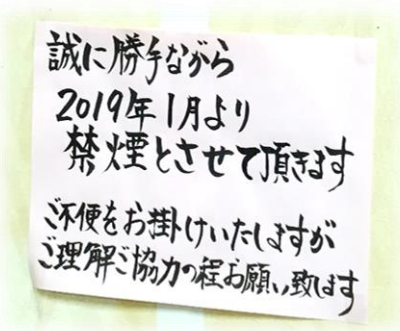 誠に勝手ながら
2019年1月より
禁煙とさせて頂きます
ご不便をお掛けいたしますが
ご理解ご協力の程お願い致します